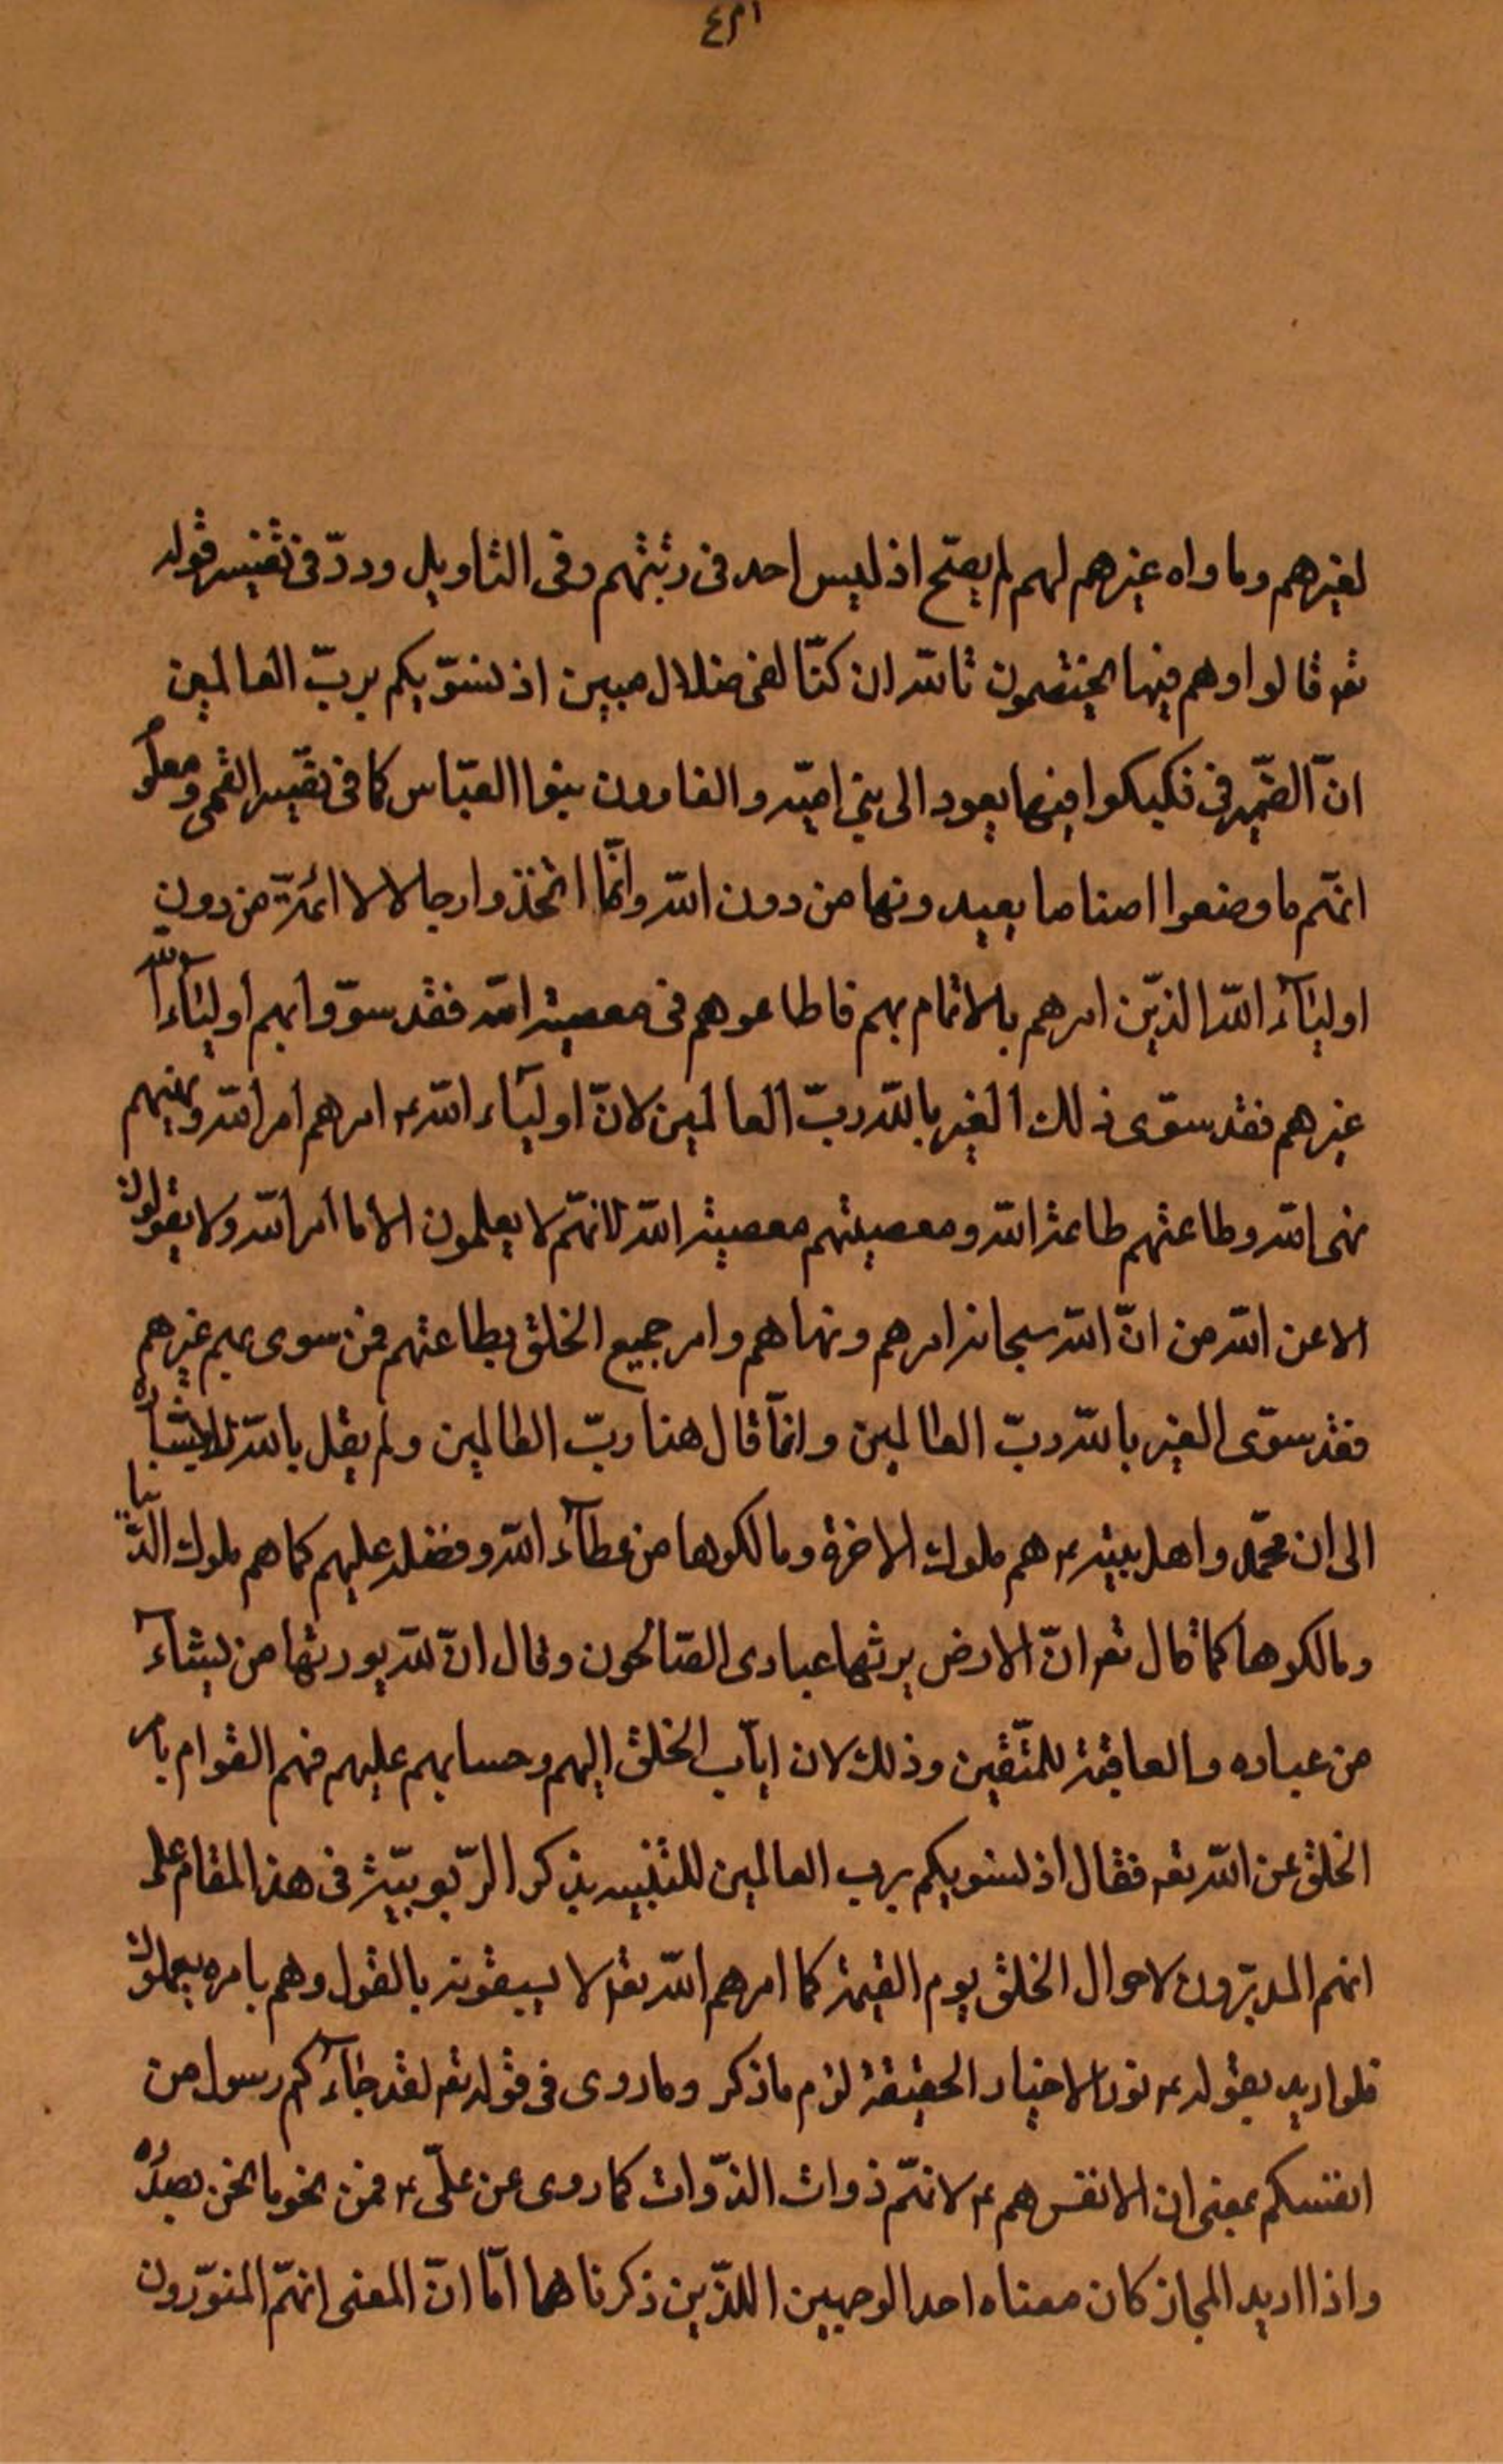 لغيرهم وما واه غيرهم لهم لم يصحّ اذ ليس احد فى رتبتهم وفى التاويل وردّ فى تفيسر قوله
تعه قالوا وهم فيها يختصمون تالله ان كنّا لفى ضلال مبين اذ نسوّيكم بربّ العالمين
انّ الضّمير فى فكبكوا فيها يعود الى بنى اميّه والغاوون بنوا العبّاس كما فى تفيسر القمى ومعلوم
انهّم ما وضعوا اصناما يعبدونها من دون الله وانّما اتخذوا رجالا لا ائمّة من دون
اوليآء الله الذيّن امرهم بالاتمام بهم فاطاعوهم فى معصية الله فقد سوّوا بهم اوليآء الله
غيرهم فقد سوّى ذلك الغير بالله ربّ العالمين لانّ اوليآء الله ع امرهم امر الله ونهيهم
نهى الله وطاعتهم طاعة الله ومعصيتهم معصية الله لانهّم لا يعلمون الا ما امر الله ولا يقولون
الا عن الله من انّ الله سبحانه امرهم ونهاهم وامر جميع الخلق بطاعتهم فمن سوى بهم غيرهم
فقد سوّى الغير بالله ربّ العالمين وانمّا قال هنا ربّ العالمين ولم يقل بالله للاشارة
الى ان محمّد واهل بيته ع هم ملوك الاخرة ومالكوها من عطآء الله وفضله عليهم كما هم ملوك الدّنيا
ومالكوها كما قال تعه انّ الارض يرثها عبادى الصّالحون وقال انّ لله يورثها من يشآء
من عباده والعاقبة للمتّقين وذلك لان ايآب الخلق اليهم وحسابهم عليهم فهم القوام بامر
الخلق عن الله تعه فقال اذ نسويكم برب العالمين للتنبيه بذكر الرّبوبيّة فى هذا المقام على
انهم المدبّرون لاحوال الخلق يوم القيمة كما امرهم الله تعه لا يسبقونه بالقول وهم بامره يعملون
فلو اريد بقوله ع نور الاخيار الحقيقة لزم ما ذكر وما روى فى قوله تعه لقد جآءكم رسول من
انفسكم بمعنى ان الانفس هم ع لانهّم ذوات الذّوات كما روى عن علىّ ع فمن نحو ما نحن بصدده
واذا اريد المجاز كان معناه احد الوجهين اللذّين ذكرناهما امّا انّ المعنى انهّم المنوّرون